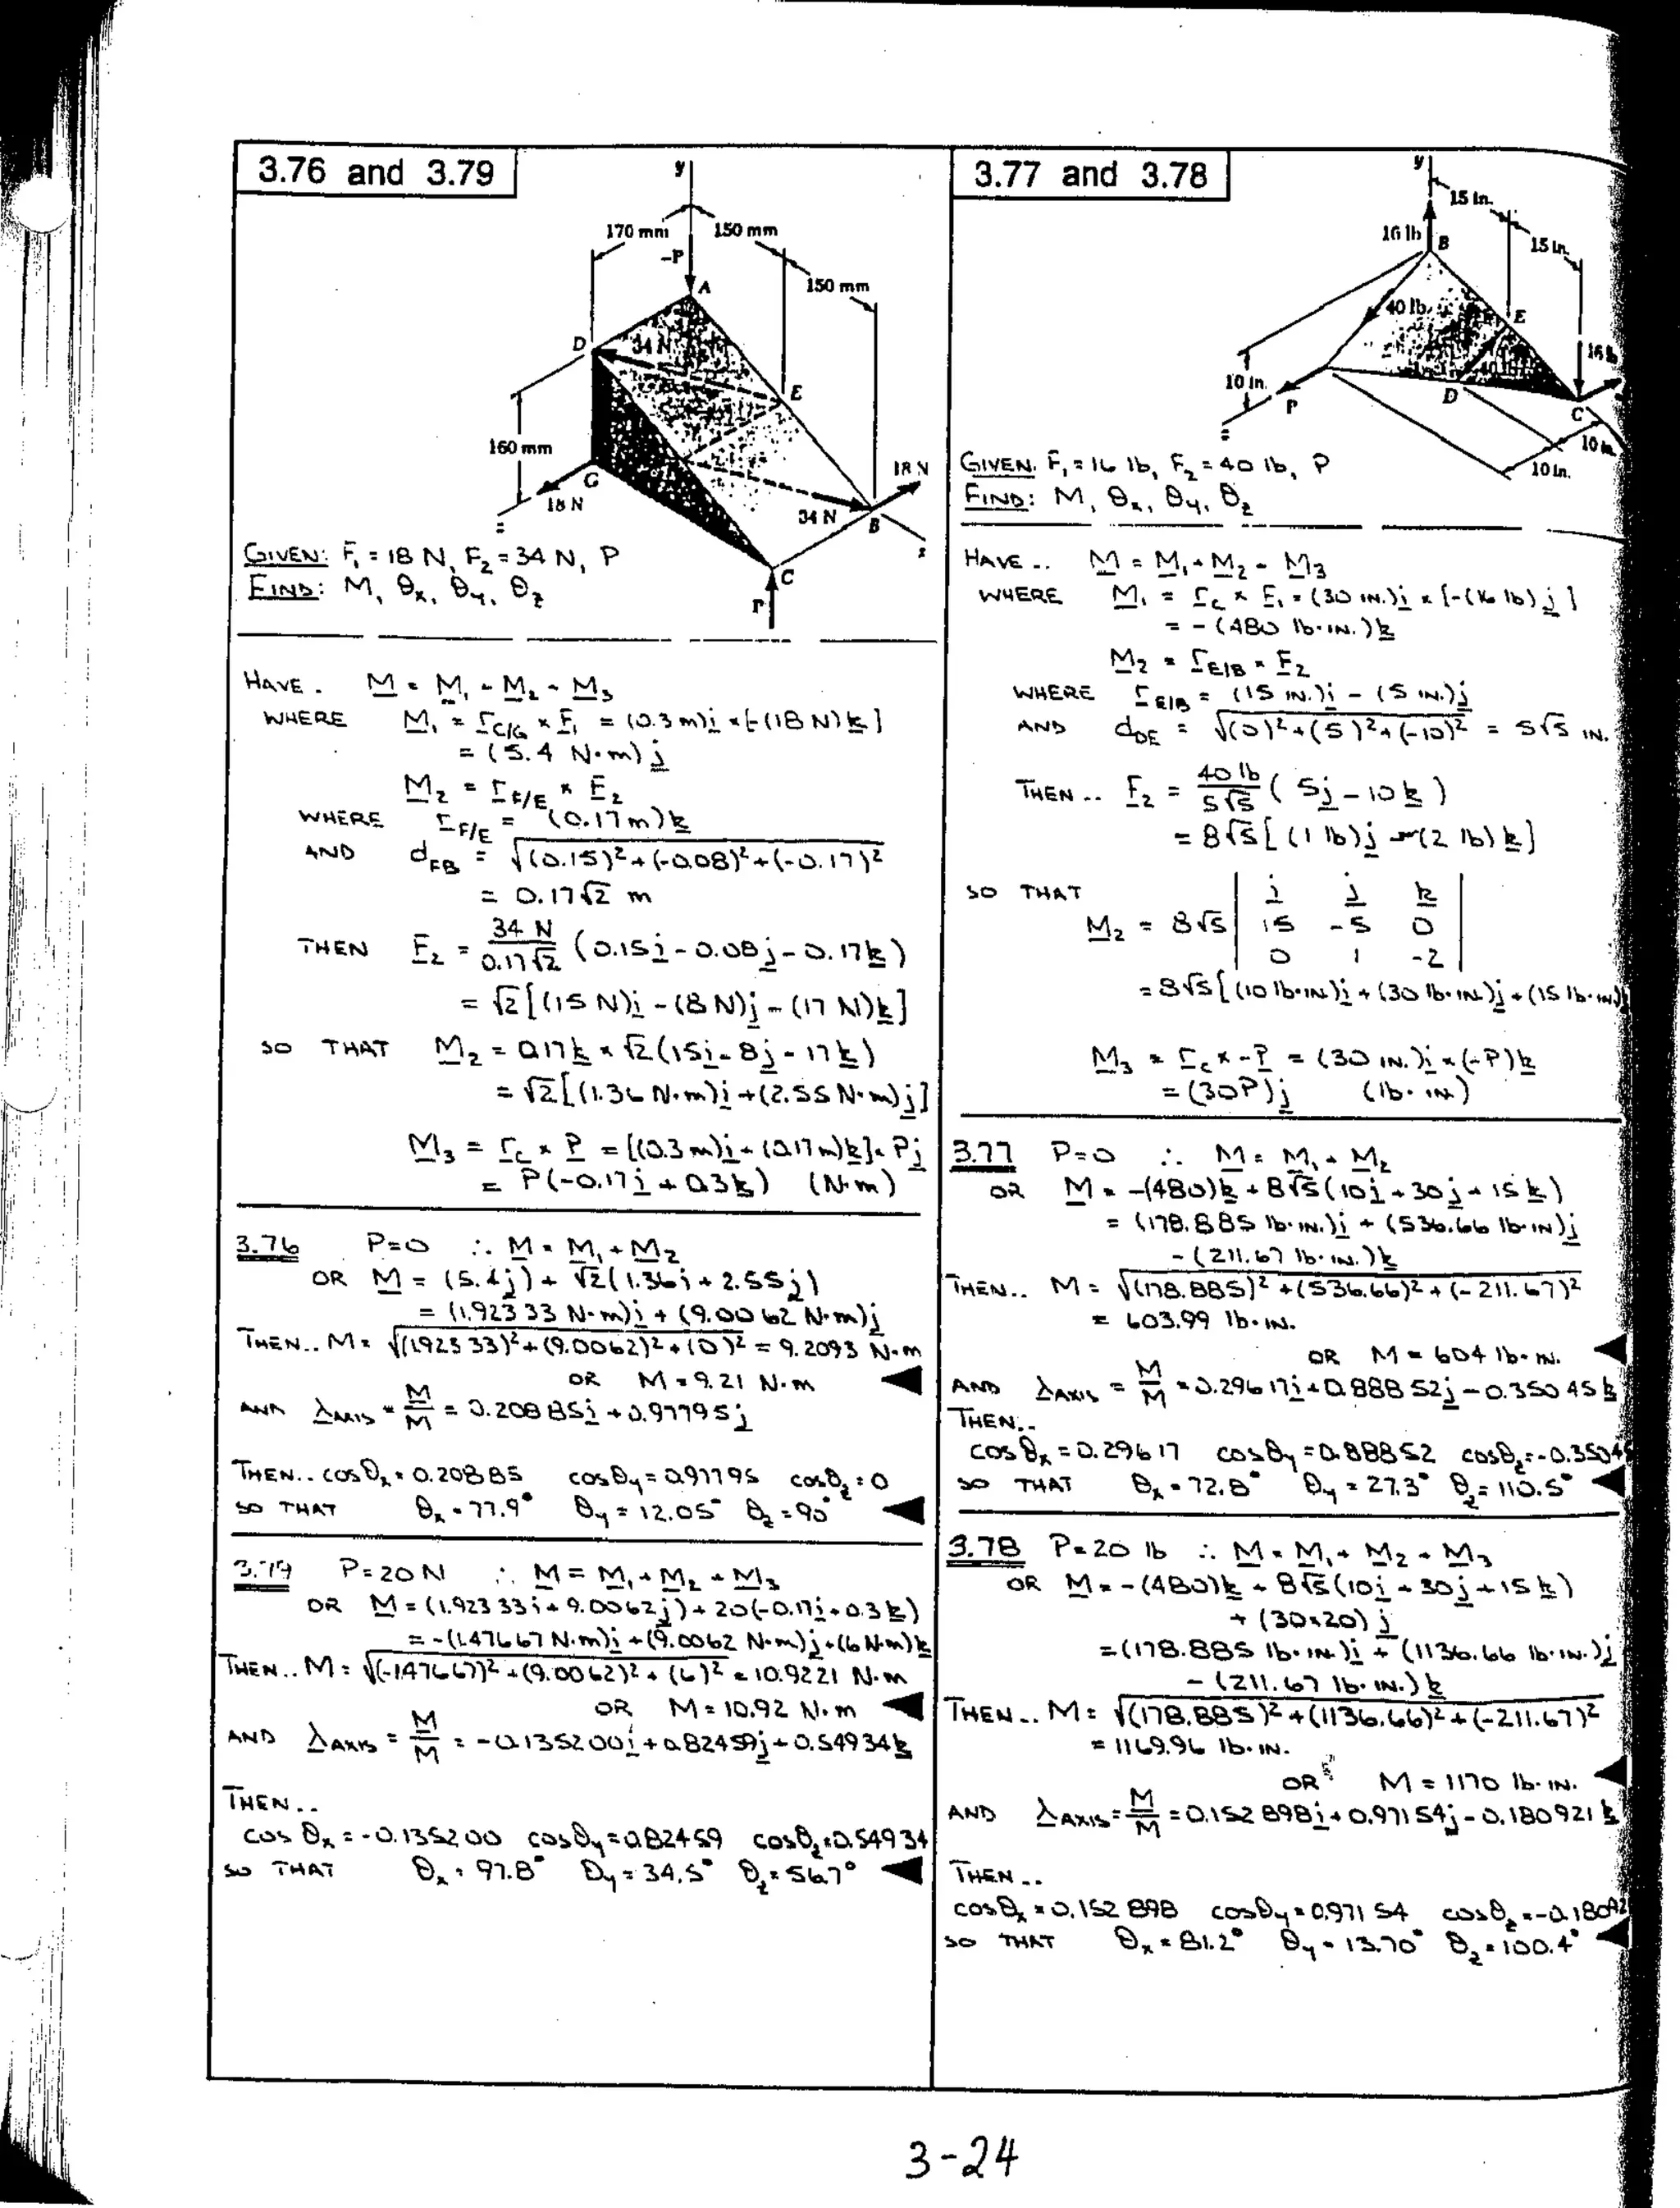 3.76 and 3.79
y
170 mm
150 mm
-P
A
150 mm
D
34 N
E
160 mm
G
18 N
18 N
34 N
B
C
P
GIVEN: F₁ = 18 N, F₂ = 34 N, P
FIND: M, θx, θy, θz
HAVE. M = M₁ + M₂ + M₃
WHERE M₁ = r_C/G × F₁ = (0.3 m)i × [-(18 N)k]
= (5.4 N·m)j
M₂ = r_F/E × F₂
WHERE r_F/E = (0.17m)k
AND d_FB = √(0.15)²+(-0.08)²+(-0.17)²
= 0.17√2 m
THEN F₂ = 34 N/0.17√2 (0.15i - 0.08j - 0.17k)
= √2[(15 N)i - (8 N)j - (17 N)k]
SO THAT M₂ = 0.17k × √2(15i - 8j - 17k)
= √2[(1.36 N·m)i + (2.55 N·m)j]
M₃ = r_C × P = [(0.3 m)i + (0.17m)k] × Pj
= P(-0.17i + 0.3k) (N·m)
3.76 P=0 ∴ M = M₁ + M₂
OR M = (5.4j) + √2(1.36i + 2.55j)
= (1.92333 N·m)i + (9.0062 N·m)j
THEN.. M = √(1.92333)²+(9.0062)²+(0)² = 9.2093 N·m
OR M = 9.21 N·m
AND λ_AXIS = M/M = 0.20885i + 0.97795j
THEN.. cosθx = 0.20885 cosθy = 0.97795 cosθz = 0
SO THAT θx = 77.9° θy = 12.05° θz = 90°
3.79 P=20 N ∴ M = M₁ + M₂ + M₃
OR M = (1.92333i + 9.0062j) + 20(-0.17i + 0.3k)
= -(1.47667 N·m)i + (9.0062 N·m)j + (6 N·m)k
THEN.. M = √(-1.47667)²+(9.0062)²+(6)² = 10.9221 N·m
OR M = 10.92 N·m
AND λ_AXIS = M/M = -0.135200i + 0.82459j + 0.54934k
THEN..
cos θx = -0.135200 cosθy = 0.82459 cosθz = 0.54934
SO THAT θx = 97.8° θy = 34.5° θz = 56.7°
3.77 and 3.78
y
15 in.
16 lb
B
15 in.
40 lb
E
16 lb
10 in.
P
D
C
10 in.
10 in.
GIVEN: F₁ = 16 lb, F₂ = 40 lb, P
FIND: M, θx, θy, θz
HAVE .. M = M₁ + M₂ + M₃
WHERE M₁ = r_C × F₁ = (30 IN.)i × [-(16 lb)j]
= -(480 lb·IN.)k
M₂ = r_E/B × F₂
WHERE r_E/B = (15 IN.)i - (5 IN.)j
AND d_DE = √(0)²+(5)²+(-10)² = 5√5 IN.
THEN .. F₂ = 40 lb/5√5 (5j - 10k)
= 8√5[(1 lb)j - (2 lb)k]
SO THAT
M₂ = 8√5 | i j k |
| 15 -5 0 |
| 0 1 -2 |
= 8√5[(10 lb·IN.)i + (30 lb·IN.)j + (15 lb·IN.)
M₃ = r_C × -P = (30 IN.)i × (-P)k
= (30P)j (lb·IN)
3.77 P=0 ∴ M = M₁ + M₂
OR M = -(480)k + 8√5(10i + 30j + 15k)
= (178.885 lb·IN.)i + (536.66 lb·IN)j
- (211.67 lb·IN.)k
THEN.. M = √(178.885)²+(536.66)²+(-211.67)²
= 603.99 lb·IN.
OR M = 604 lb·IN.
AND λ_AXIS = M/M = 0.29617i + 0.88852j - 0.35045k
THEN..
cosθx = 0.29617 cosθy = 0.88852 cosθz = -0.3504
SO THAT θx = 72.8° θy = 27.3° θz = 110.5°
3.78 P=20 lb ∴ M = M₁ + M₂ + M₃
OR M = -(480)k + 8√5(10i + 30j + 15k)
+ (30×20)j
= (178.885 lb·IN.)i + (1136.66 lb·IN.)j
- (211.67 lb·IN.)k
THEN.. M = √(178.885)²+(1136.66)²+(-211.67)²
= 1169.96 lb·IN.
OR M = 1170 lb·IN.
AND λ_AXIS = M/M = 0.152898i + 0.97154j - 0.180921k
THEN..
cosθx = 0.152898 cosθy = 0.97154 cosθz = -0.18092
SO THAT θx = 81.2° θy = 13.70° θz = 100.4°
3-24